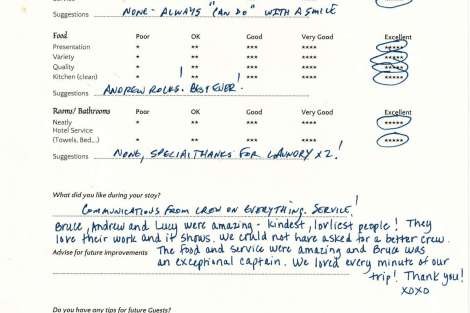 Suggestions NONE - ALWAYS "CAN DO" WITH A SMILE
Food Poor OK Good Very Good Excellent
Presentation * ** *** **** *****
Variety * ** *** **** *****
Quality * ** *** **** *****
Kitchen (clean) * ** *** **** *****
Suggestions ANDREW ROCKS! BEST EVER!
Rooms/ Bathrooms Poor OK Good Very Good Excellent
Neatly * ** *** **** *****
Hotel Service
(Towels, Bed,...) * ** *** **** *****
Suggestions NONE, SPECIAL THANKS FOR LAUNDRY x2!
What did you like during your stay?
COMMUNICATIONS FROM CREW ON EVERYTHING. SERVICE!
Bruce, Andrew and Lucy were amazing - kindest, lovliest people! They
love their work and it shows. We could not have asked for a better crew.
Advise for future improvements The food and service were amazing and Bruce was
an exceptional captain. We loved every minute of our
trip! Thank you!
XOXO
Do you have any tips for future Guests?